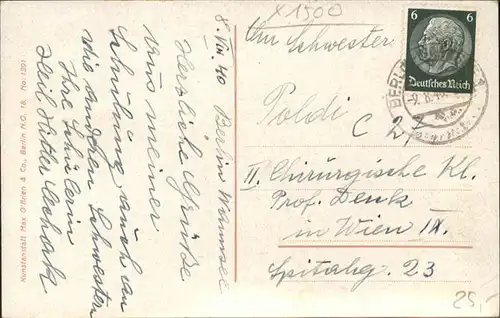 x 1500
8. VIII. 40 Berlin Wannsee
Herzliche Grüße
aus meiner
Schulung, auch an
die anderen Schwestern
Ihre Schülerin
Heil Hitler
An Schwester
Poldi
C 27
II. Chirurgische Kl.
Prof. Denk
in Wien IX.
Spitalg. 23
6 6
Deutsches Reich
BERLIN
-9.8.40
25,-
Kunstanstalt Max O'Brien & Co., Berlin N.O. 18. No: 1201